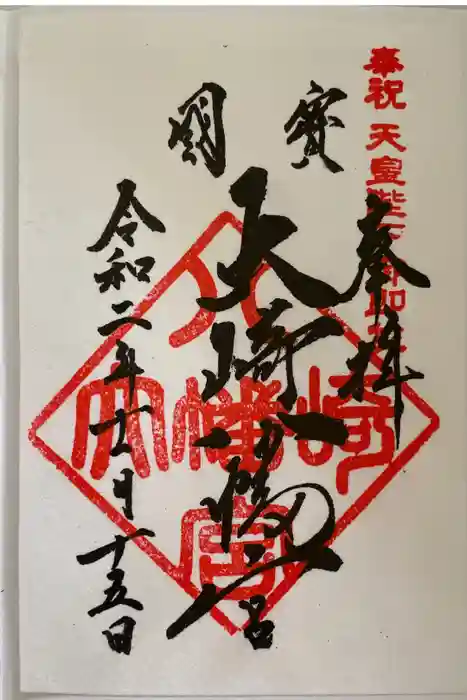 奉祝 天皇陛下御即位
奉拝
國寶
大崎八幡宮
令和二年十一月十五日
八
大幡崎
宮